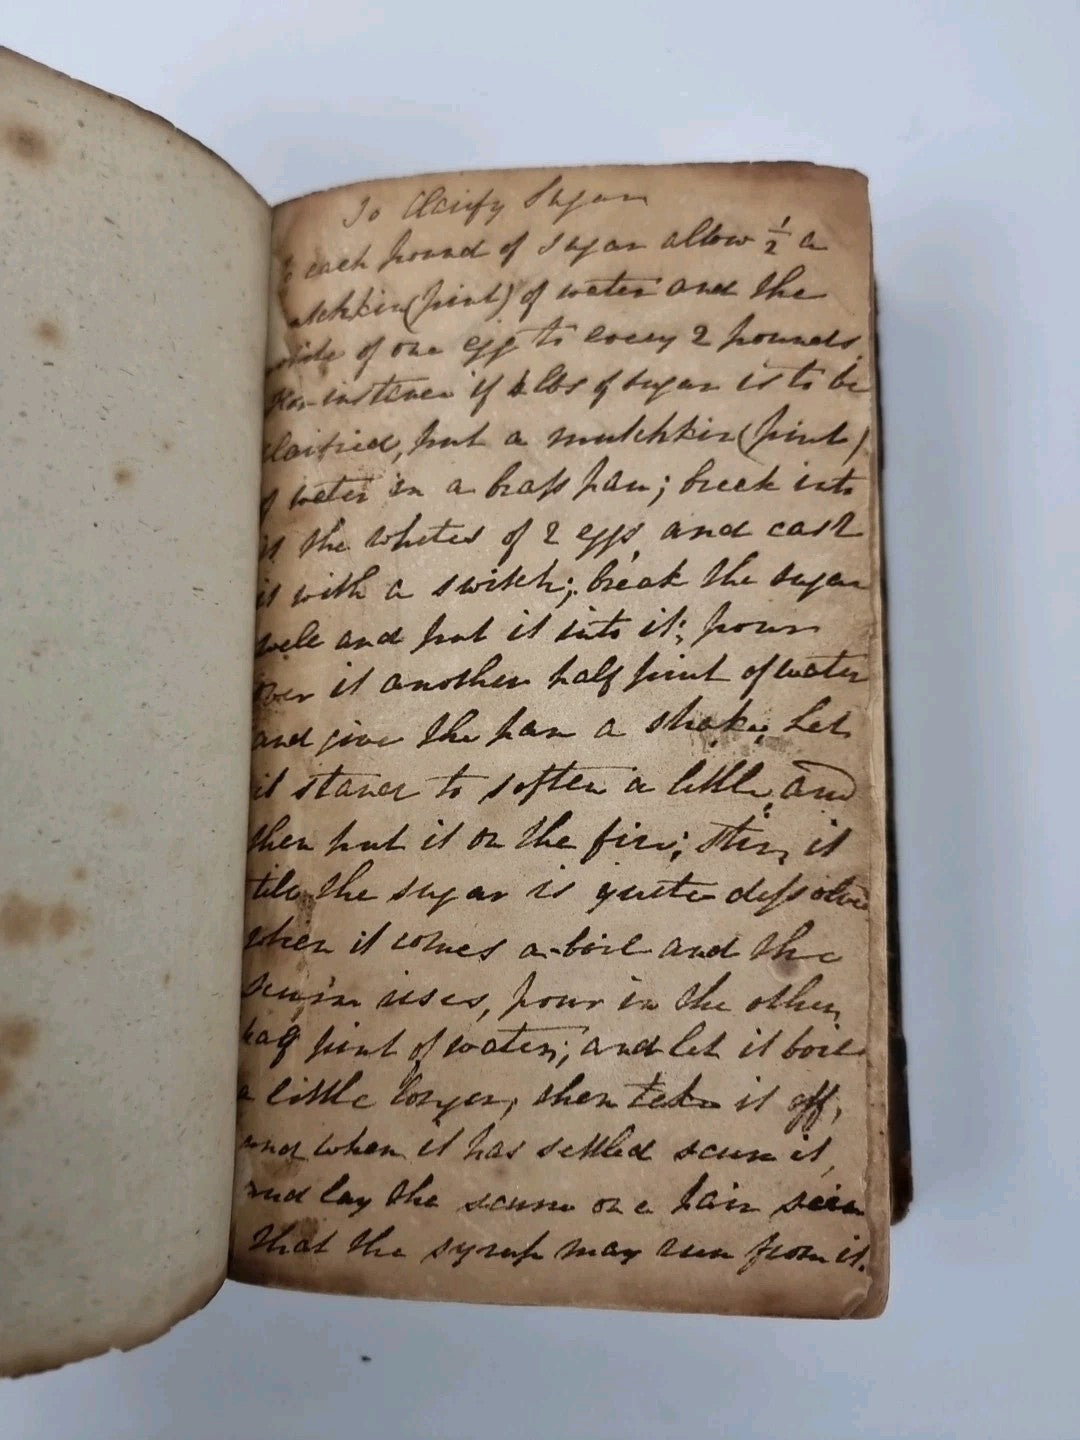 To Clarify Sugar
To each pound of sugar allow 1/2 a
mutchkin (pint) of water and the
white of one egg to every 2 pounds.
For instance if 4 lbs of sugar is to be
clarified, put a mutchkin (pint)
of water in a brass pan; break into
it the whites of 2 eggs, and cast
it with a switch; break the sugar
well and put it into it; pour
over it another half pint of water
and give the pan a shake; Let
it stand to soften a little, and
then put it on the fire; stir it
till the sugar is quite dissolved
when it comes a-boil and the
scum rises, pour in the other
half pint of water; and let it boil
a little longer; then take it off,
and when it has settled scum it,
and lay the scum on a hair
that the syrup may run from it.